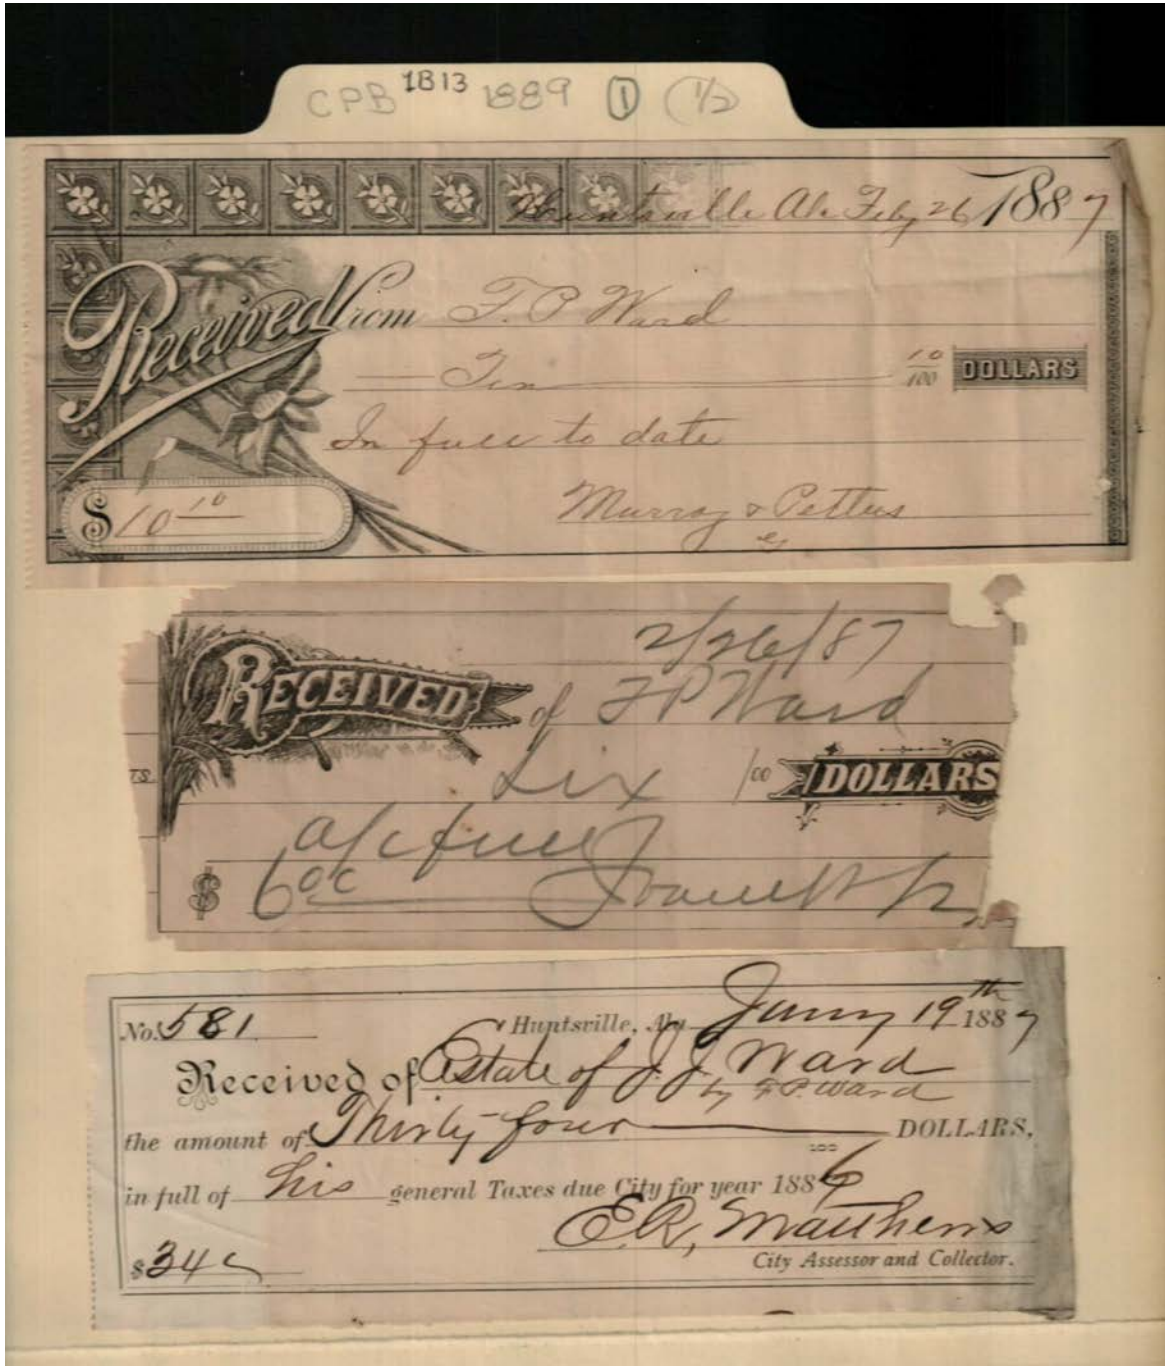 CPB 1813 1889 1 (1/2)
Huntsville Ala Feby 26 1887
Received from F. P Ward
Ten 10/100 DOLLARS
In full to date
$10 10
Murray & Pettus
2/26/87
RECEIVED of F P Ward
TS.
Six /00 DOLLARS
a/c full
$ 6 00
No. 581 Huntsville, Ala Jany 19th 1887
Received of Estate of J. J. Ward
by F. P. Ward
the amount of Thirty four DOLLARS,
in full of his general Taxes due City for year 1886
E. R, Matthews
$34 City Assessor and Collector.